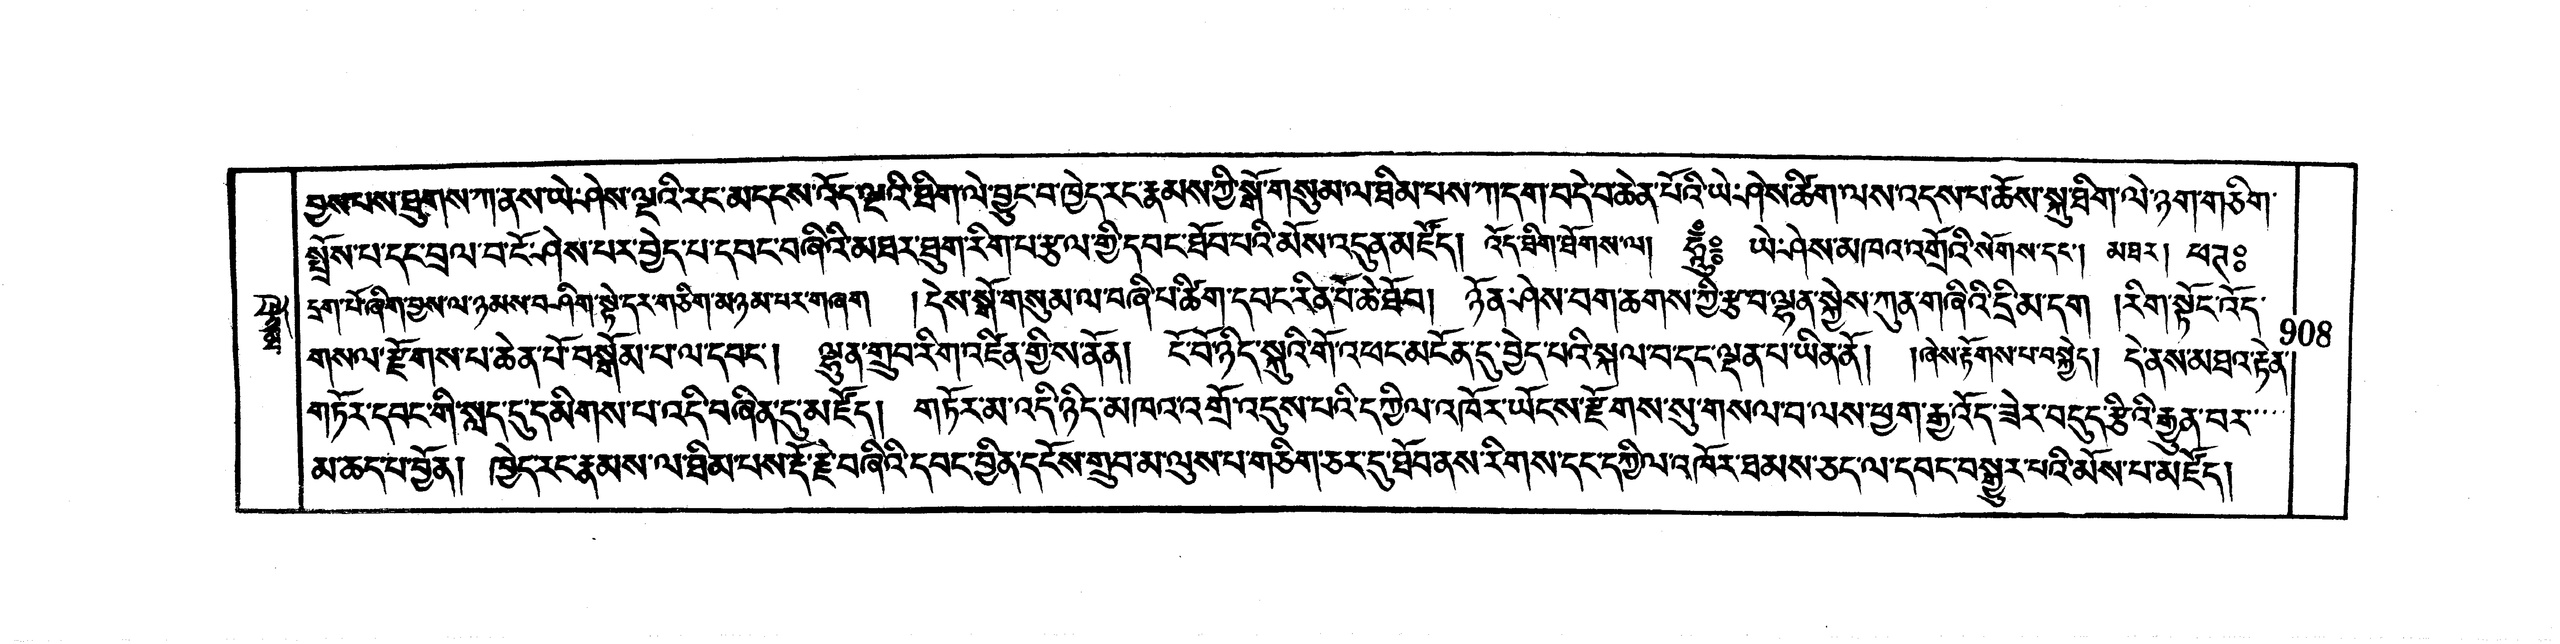 བྱས་པས་ཐུགས་ཀ་ནས་ཡེ་ཤེས་ལྔའི་རང་མདངས་འོད་ལྔའི་ཐིག་ལེ་བྱུང་བ་ཁྱེད་རང་རྣམས་ཀྱི་སྒོ་གསུམ་ལ་ཐིམ་པས་ཀ་དག་བདེ་བ་ཆེན་པོའི་ཡེ་ཤེས་ཚིག་ལས་འདས་པ་ཆོས་སྐུ་ཐིག་ལེ་ཉག་གཅིག་
སྤྲོས་པ་དང་བྲལ་བ་ངོ་ཤེས་པར་བྱེད་པ་དབང་བཞིའི་མཐར་ཐུག་རིག་པ་རྩལ་གྱི་དབང་ཐོབ་པའི་མོས་འདུན་མཛོད། འོད་ཐིག་ཐོགས་ལ། ཧཱུྃ༔ ཡེ་ཤེས་མཁའ་འགྲོའི་སོགས་དང་། མཐར། ཕཊ༔
དྲག་པོ་ཞིག་བྱས་ལ་ཉམས་བ་ཤིག་སྟེ་དར་གཅིག་མཉམ་པར་གཞག །དེས་སྒོ་གསུམ་ལ་བཞི་པ་ཚིག་དབང་རིན་པོ་ཆེ་ཐོབ། ཉོན་ཤེས་བག་ཆགས་ཀྱི་རྩ་བ་ལྷན་སྐྱེས་ཀུན་གཞིའི་དྲི་མ་དག །རིག་སྟོང་འོད་
གསལ་རྫོགས་པ་ཆེན་པོ་བསྒོམ་པ་ལ་དབང་། ལྷུན་གྲུབ་རིག་འཛིན་གྱི་ས་ནོན། ངོ་བོ་ཉིད་སྐུའི་གོ་འཕང་མངོན་དུ་བྱེད་པའི་སྐལ་བ་དང་ལྡན་པ་ཡིན་ནོ། །ཞེས་རྟོགས་པ་བསྐྱེད། དེ་ནས་མཐའ་རྟེན་།
གཏོར་དབང་གི་སླད་དུ་དམིགས་པ་འདི་བཞིན་དུ་མཛོད། གཏོར་མ་འདི་ཉིད་མཁའ་འགྲོ་འདུས་པའི་དཀྱིལ་འཁོར་ཡོངས་རྫོགས་སུ་གསལ་བ་ལས་ཕྱག་རྒྱ་འོད་ཟེར་བདུད་རྩིའི་རྒྱུན་བར་····
མ་ཆད་པ་བྱོན། ཁྱེད་རང་རྣམས་ལ་ཐིམ་པས་རྡོ་རྗེ་བཞིའི་དབང་བྱིན་དངོས་གྲུབ་མ་ལུས་པ་གཅིག་ཅར་དུ་ཐོབ་ནས་རིགས་དང་དཀྱིལ་འཁོར་ཐམས་ཅད་ལ་དབང་བསྒྱུར་པའི་མོས་པ་མཛོད།
908